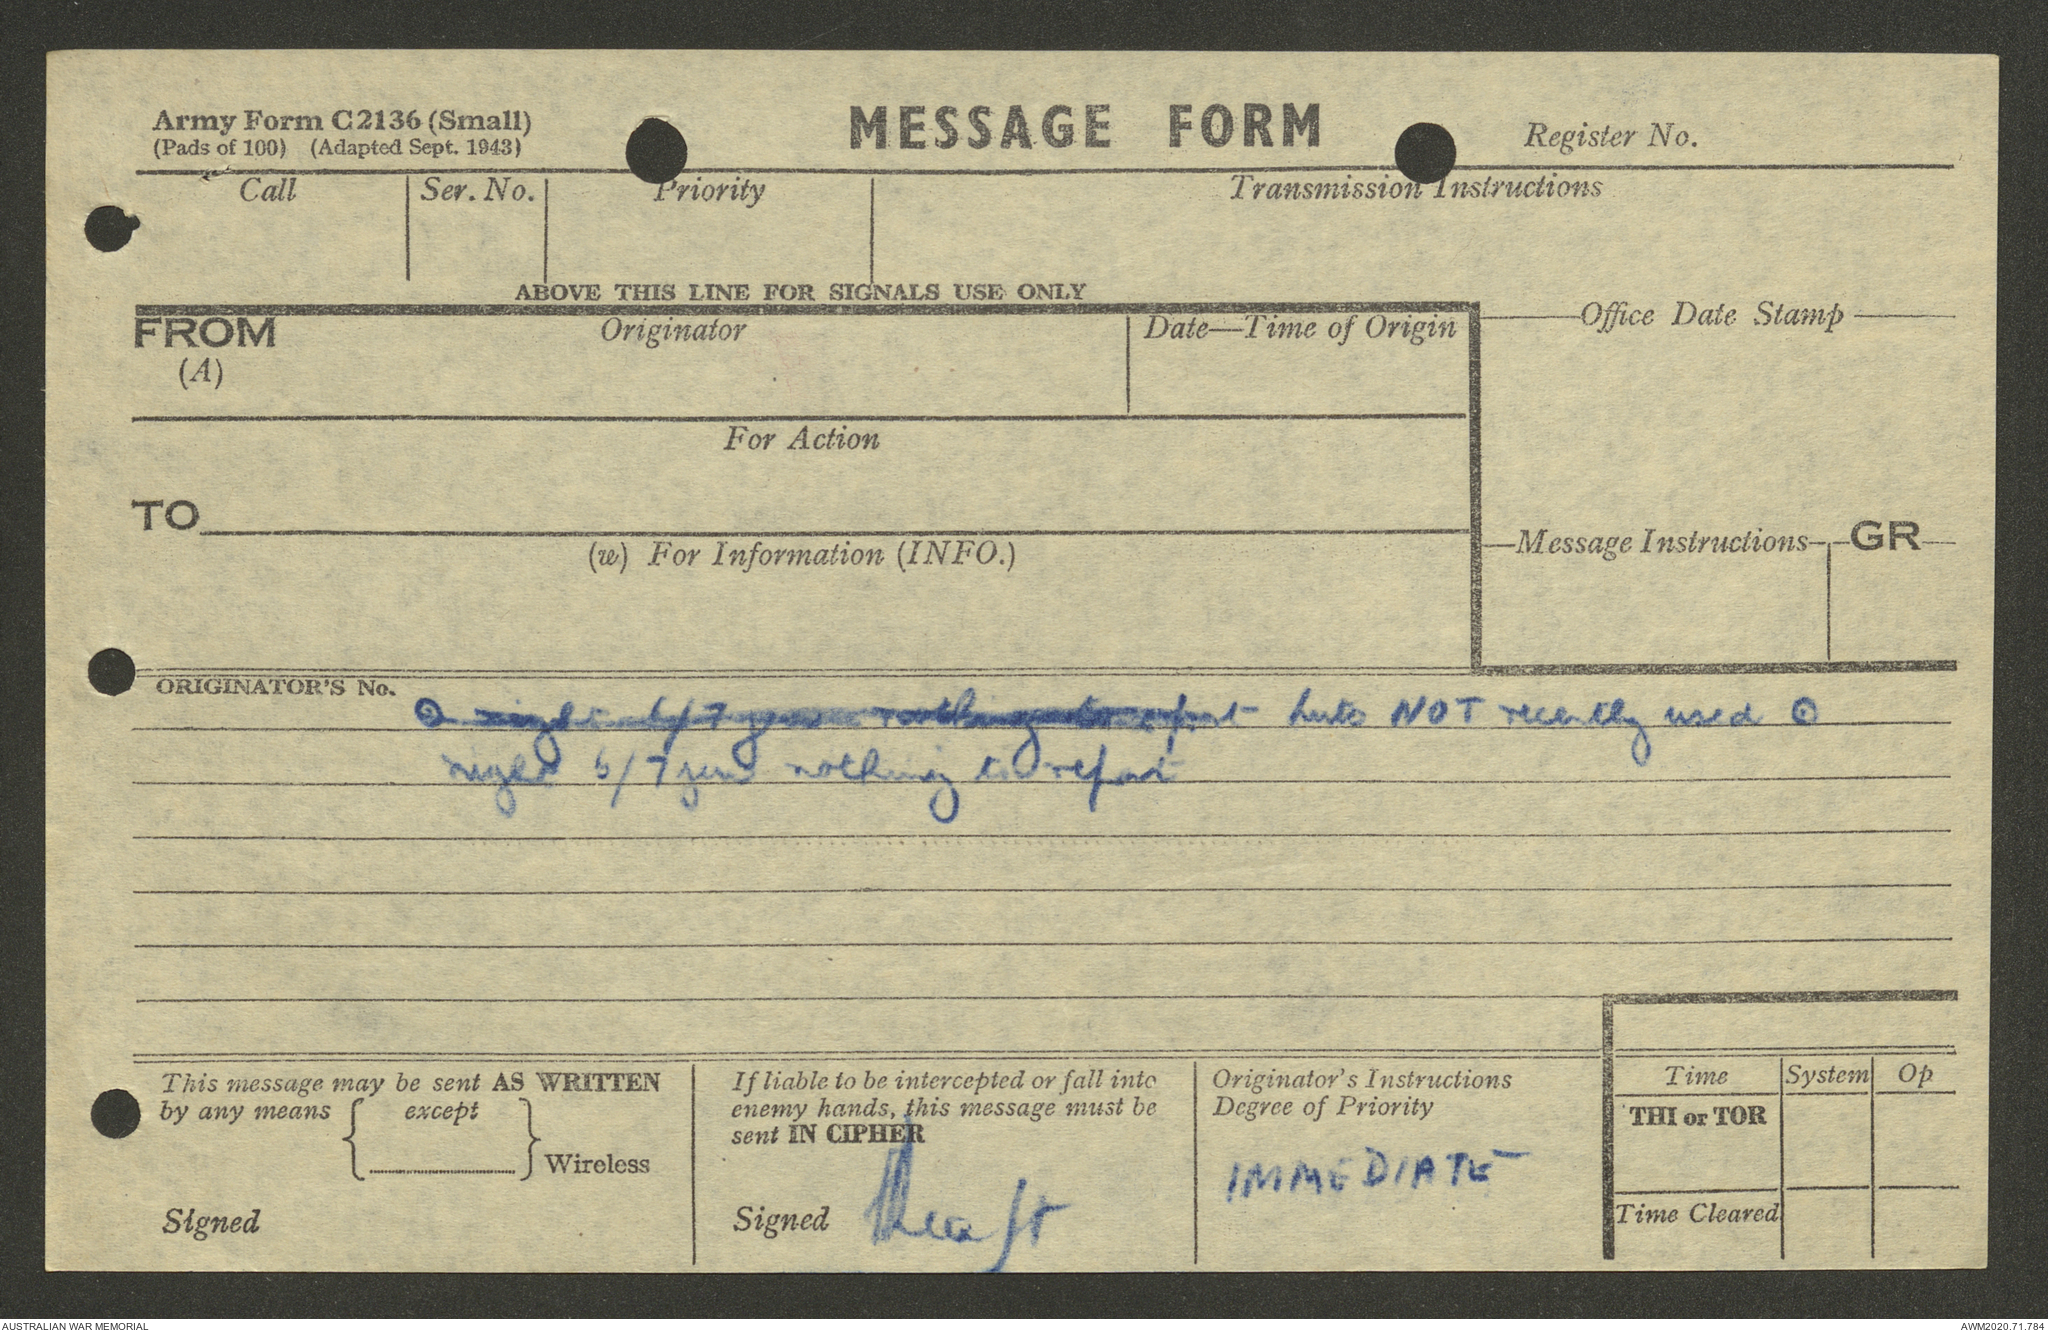 Army Form C2136 (Small)
(Pads of 100) (Adapted Sept. 1943)
MESSAGE FORM
Register No.
Call
Ser. No.
Priority
Transmission Instructions
ABOVE THIS LINE FOR SIGNALS USE ONLY
FROM
(A)
Originator
Date—Time of Origin
Office Date Stamp
For Action
TO
(w) For Information (INFO.)
Message Instructions
GR
ORIGINATOR'S No.
night 6/7 jun nothing to report huts NOT recently used
night 6/7 jun nothing to report
This message may be sent AS WRITTEN
by any means { except }
Wireless
Signed
If liable to be intercepted or fall into
enemy hands, this message must be
sent IN CIPHER
Signed
Originator's Instructions
Degree of Priority
IMMEDIATE
Time
System
Op
THI or TOR
Time Cleared
AUSTRALIAN WAR MEMORIAL
AWM2020.71.784